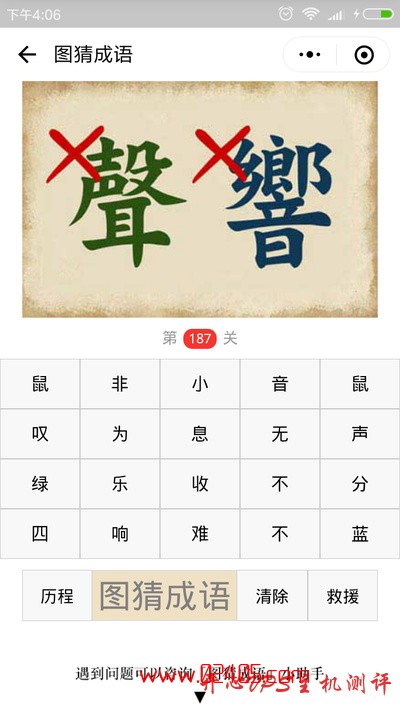 下午4:06
图猜成语
聲響
第 187 关
鼠 非 小 音 鼠
叹 为 息 无 声
绿 乐 收 不 分
四 响 难 不 蓝
历程 图猜成语 清除 救援
遇到问题可以咨询 图猜成语 小助手